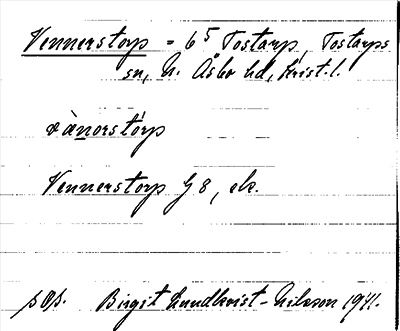 Vennerstorp = 6⁵ Tostarp, Tostarps
sn, N. Åsbo hd, Krist. l.
vànorstórp
Vennerstorp G 8, ek.
pop. Birgit Lundkvist-Nilsson 1941.